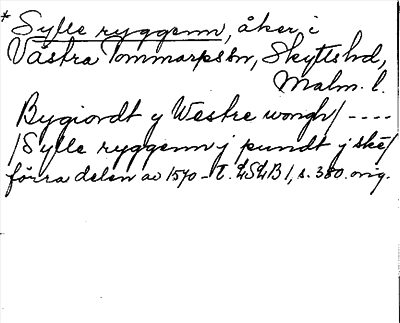 * Sylle ryggenn, åker i
Västra Tommarps sn, Skytts hd,
Malm. l.
Bygiordt y Westre wongh/ ----
/Sylle ryggenn j pundt j skė/
förra delen av 1570-t. LSLB 1, s. 380. orig.